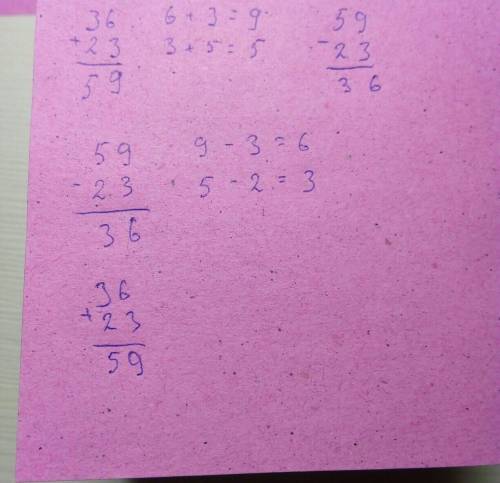 36 6 + 3 = 9 59
+ 23 3 + 5 = 5 - 23
59 36
59 9 - 3 = 6
- 23 5 - 2 = 3
36
36
+ 23
59